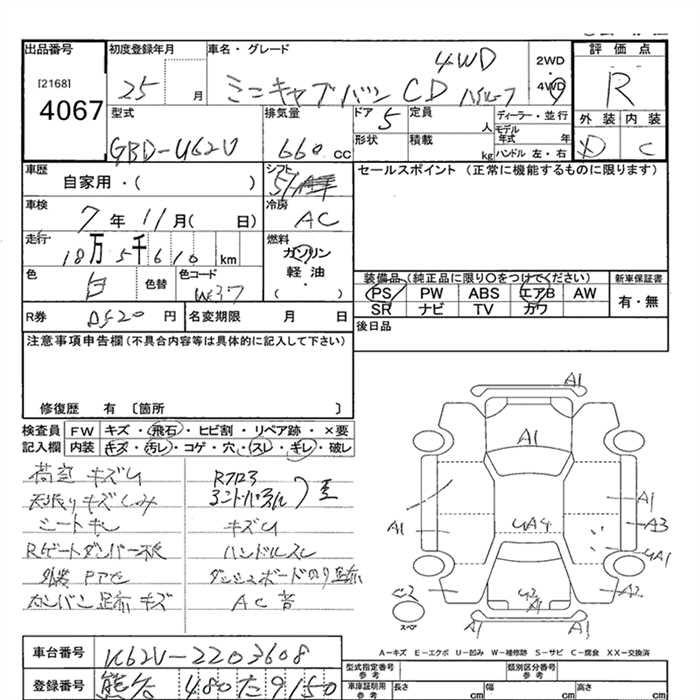 出品番号
[2168]
4067
初度登録年月
25 月
車名・グレード
ミニキャブバン CD ハイルーフ
4WD
2WD
4WD
評価点
R
外装 内装
D C
型式
GBD-U62V
排気量
660 cc
ドア 5
形状
定員 人
積載 kg
ディーラー・並行
モデル年式 年
ハンドル 左・右
車歴
自家用・( )
シフト
5
車検
7年11月( 日)
冷房
AC
走行
18万5千610 km
燃料
ガソリン
軽油
( )
色
白
色替
色コード
W37
R券
円
名変期限 月 日
セールスポイント (正常に機能するものに限ります)
装備品(純正品に限り○をつけてください)
PS PW ABS エアB AW
SR ナビ TV カワ
新車保証書
有・無
後日品
注意事項申告欄(不具合内容等は具体的に記入して下さい)
修復歴 有 〔箇所 〕
検査員記入欄
FW キズ・飛石・ヒビ割・リペア跡・×要
内装 キズ・汚レ・コゲ・穴・スレ・キレ・破レ
荷室 キズ
天張り キズ シミ
シート キレ
Rゲートダンパー不良
外装
キズ
R フロア
キズ
ハンドルスレ
ダッシュボードのり
AC 音
A1
A1
A1
A1
A3
4A4
4A1
A2
A1
A1
スペア
A-キズ E-エクボ U-凹み W-補修跡 S-サビ C-腐食 XX-交換済
車台番号
U62V-2203608
登録番号
480 た 9150
型式指定番号
参考
類別区分番号
参考
車庫証明用
参考
長さ cm
幅 cm
高さ cm